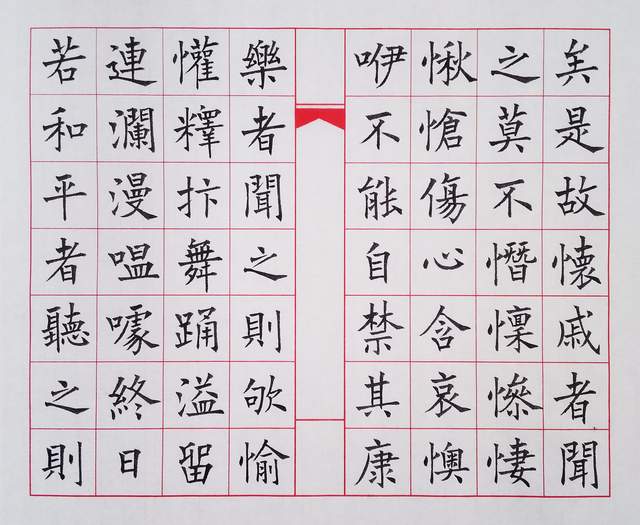 矣是故懷戚者聞
之莫不憯懍慘悽
愀愴傷心含哀懊
咿不能自禁其康
樂者聞之則欨愉
懽釋抃舞踊溢留
連瀾漫嗢噱終日
若和平者聽之則